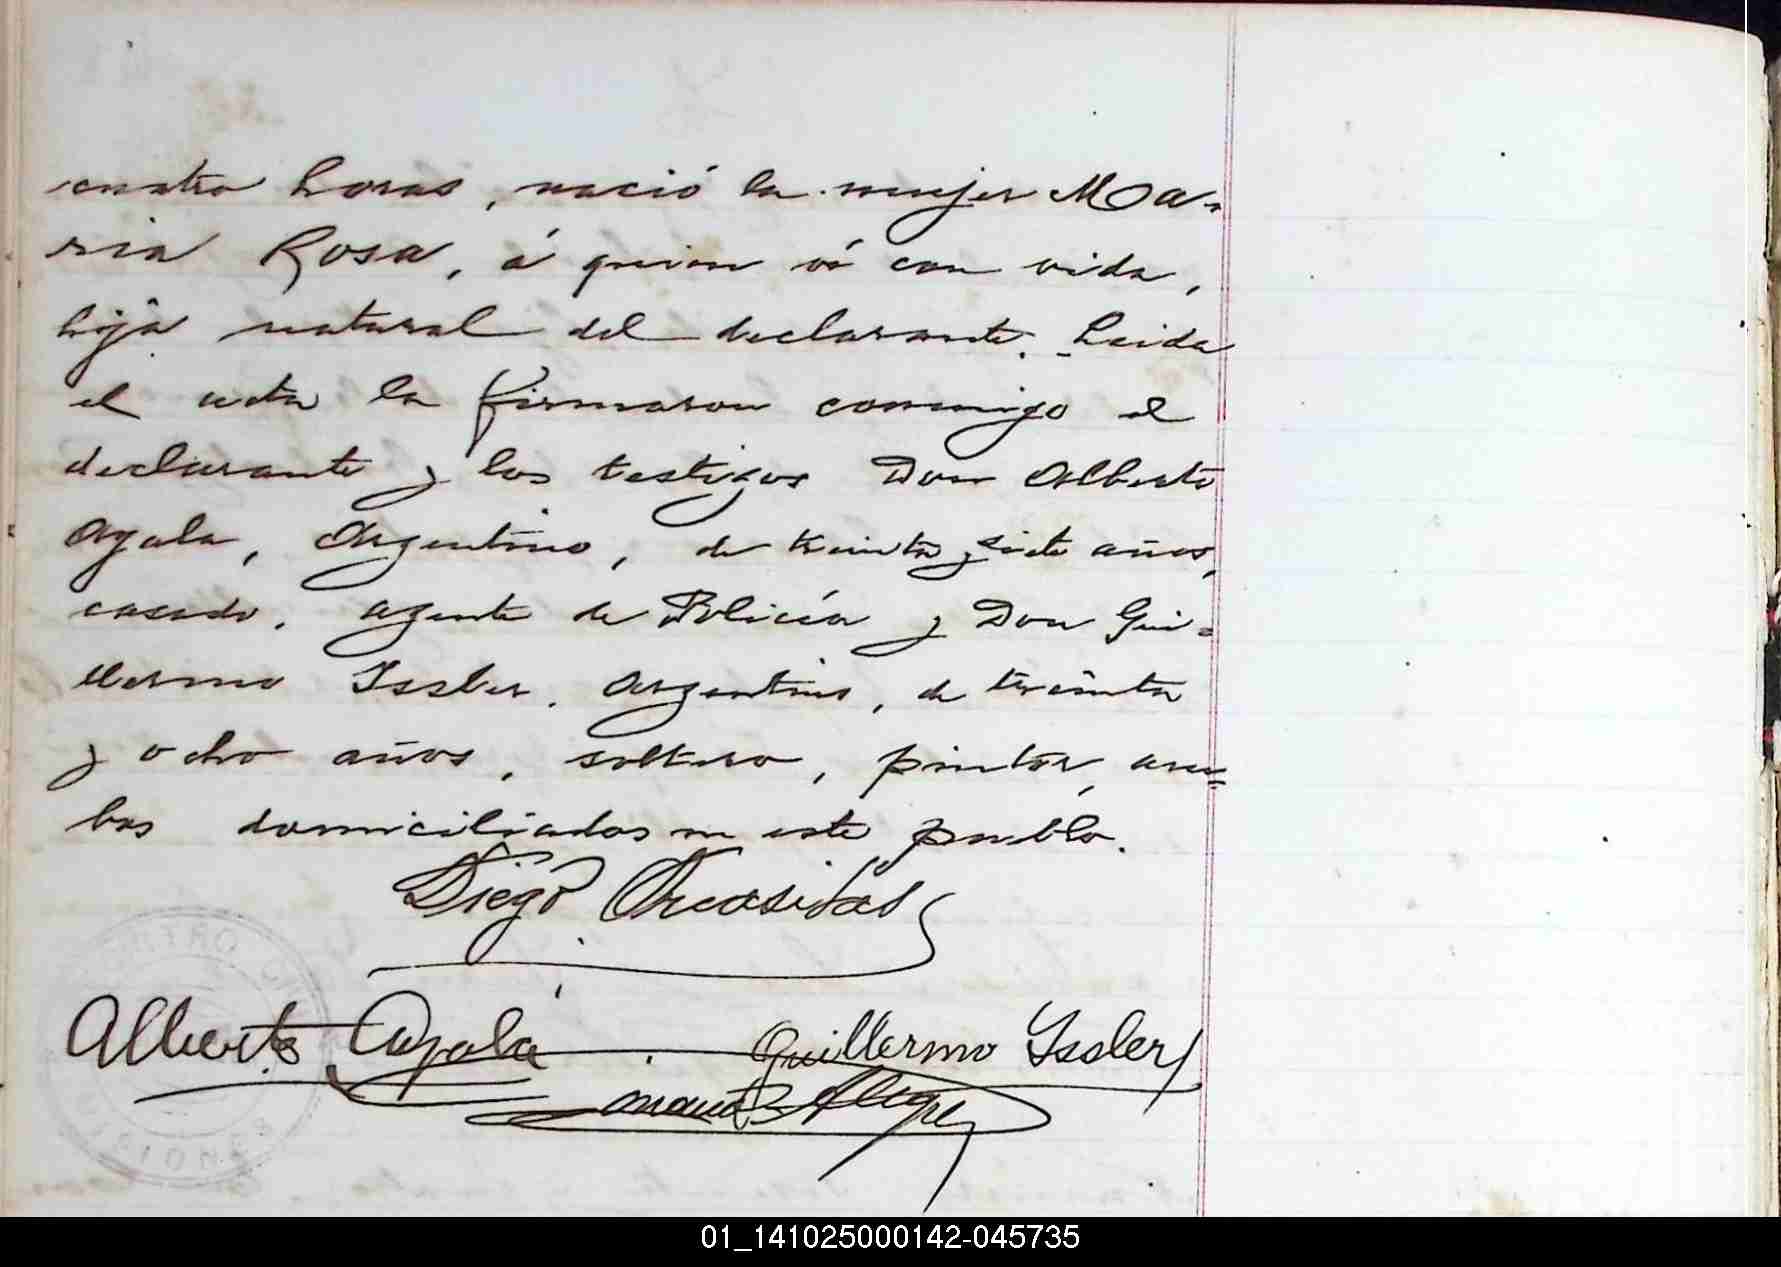 cuatro horas, nació la mujer Ma-
ria Rosa, á quien ví con vida,
hija natural del declarante. Leida
el acta la firmaron conmigo el
declarante y los testigos Don Alberto
Ayala, Argentino, de treinta y siete años,
casado, agente de Policía y Don Gui-
llermo Issler, Argentino, de treinta
y ocho años, soltero, pintor, am-
bos domiciliados en este pueblo.
Diego
Alberto Ayala Guillermo Issler
Alegre
01_141025000142-045735